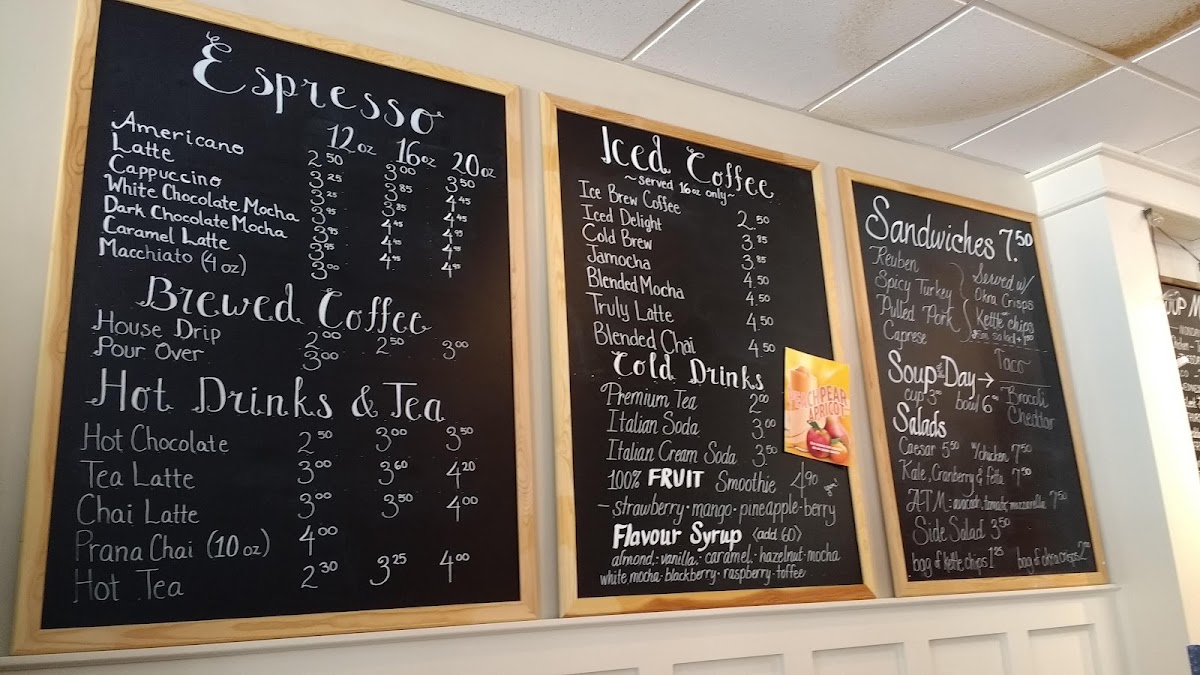 Espresso
12oz 16oz 20oz
Americano 2.50 3.00 3.50
Latte 3.25 3.85 4.45
Cappuccino 3.25 3.85 4.45
White Chocolate Mocha 3.95 4.45 4.95
Dark Chocolate Mocha 3.95 4.45 4.95
Caramel Latte 3.95 4.45 4.95
Macchiato (4oz) 3.00
Brewed Coffee
House Drip 2.00 2.50 3.00
Pour Over 3.00
Hot Drinks & Tea
Hot Chocolate 2.50 3.00 3.50
Tea Latte 3.00 3.60 4.20
Chai Latte 3.00 3.50 4.00
Prana Chai (10oz) 4.00
Hot Tea 2.30 3.25 4.00
Iced Coffee
~served 16oz only~
Ice Brew Coffee 2.50
Iced Delight 3.85
Cold Brew 3.85
Jamocha 4.50
Blended Mocha 4.50
Truly Latte 4.50
Blended Chai 4.50
Cold Drinks
Premium Tea 2.00
Italian Soda 3.00
Italian Cream Soda 3.50
100% FRUIT Smoothie 4.90
- strawberry · mango · pineapple · berry
Flavour Syrup (add .60)
almond · vanilla · caramel · hazelnut · mocha
white mocha · blackberry · raspberry · toffee
PEAR
APRICOT
Sandwiches 7.50
Reuben
Spicy Turkey
Pulled Pork
Caprese
Served w/
Okra Crisps
Kettle chips
Soup of the Day →
cup 3.00 bowl 6.00
Taco
Brocoli
Cheddar
Salads
Caesar 5.50 w/chicken 7.50
Kale, Cranberry & fetta 7.50
A.T.M: avacado, tomato, mozzarella 7.50
Side Salad 3.50
bag of kettle chips 1.25 bag of okra crisps 2.00